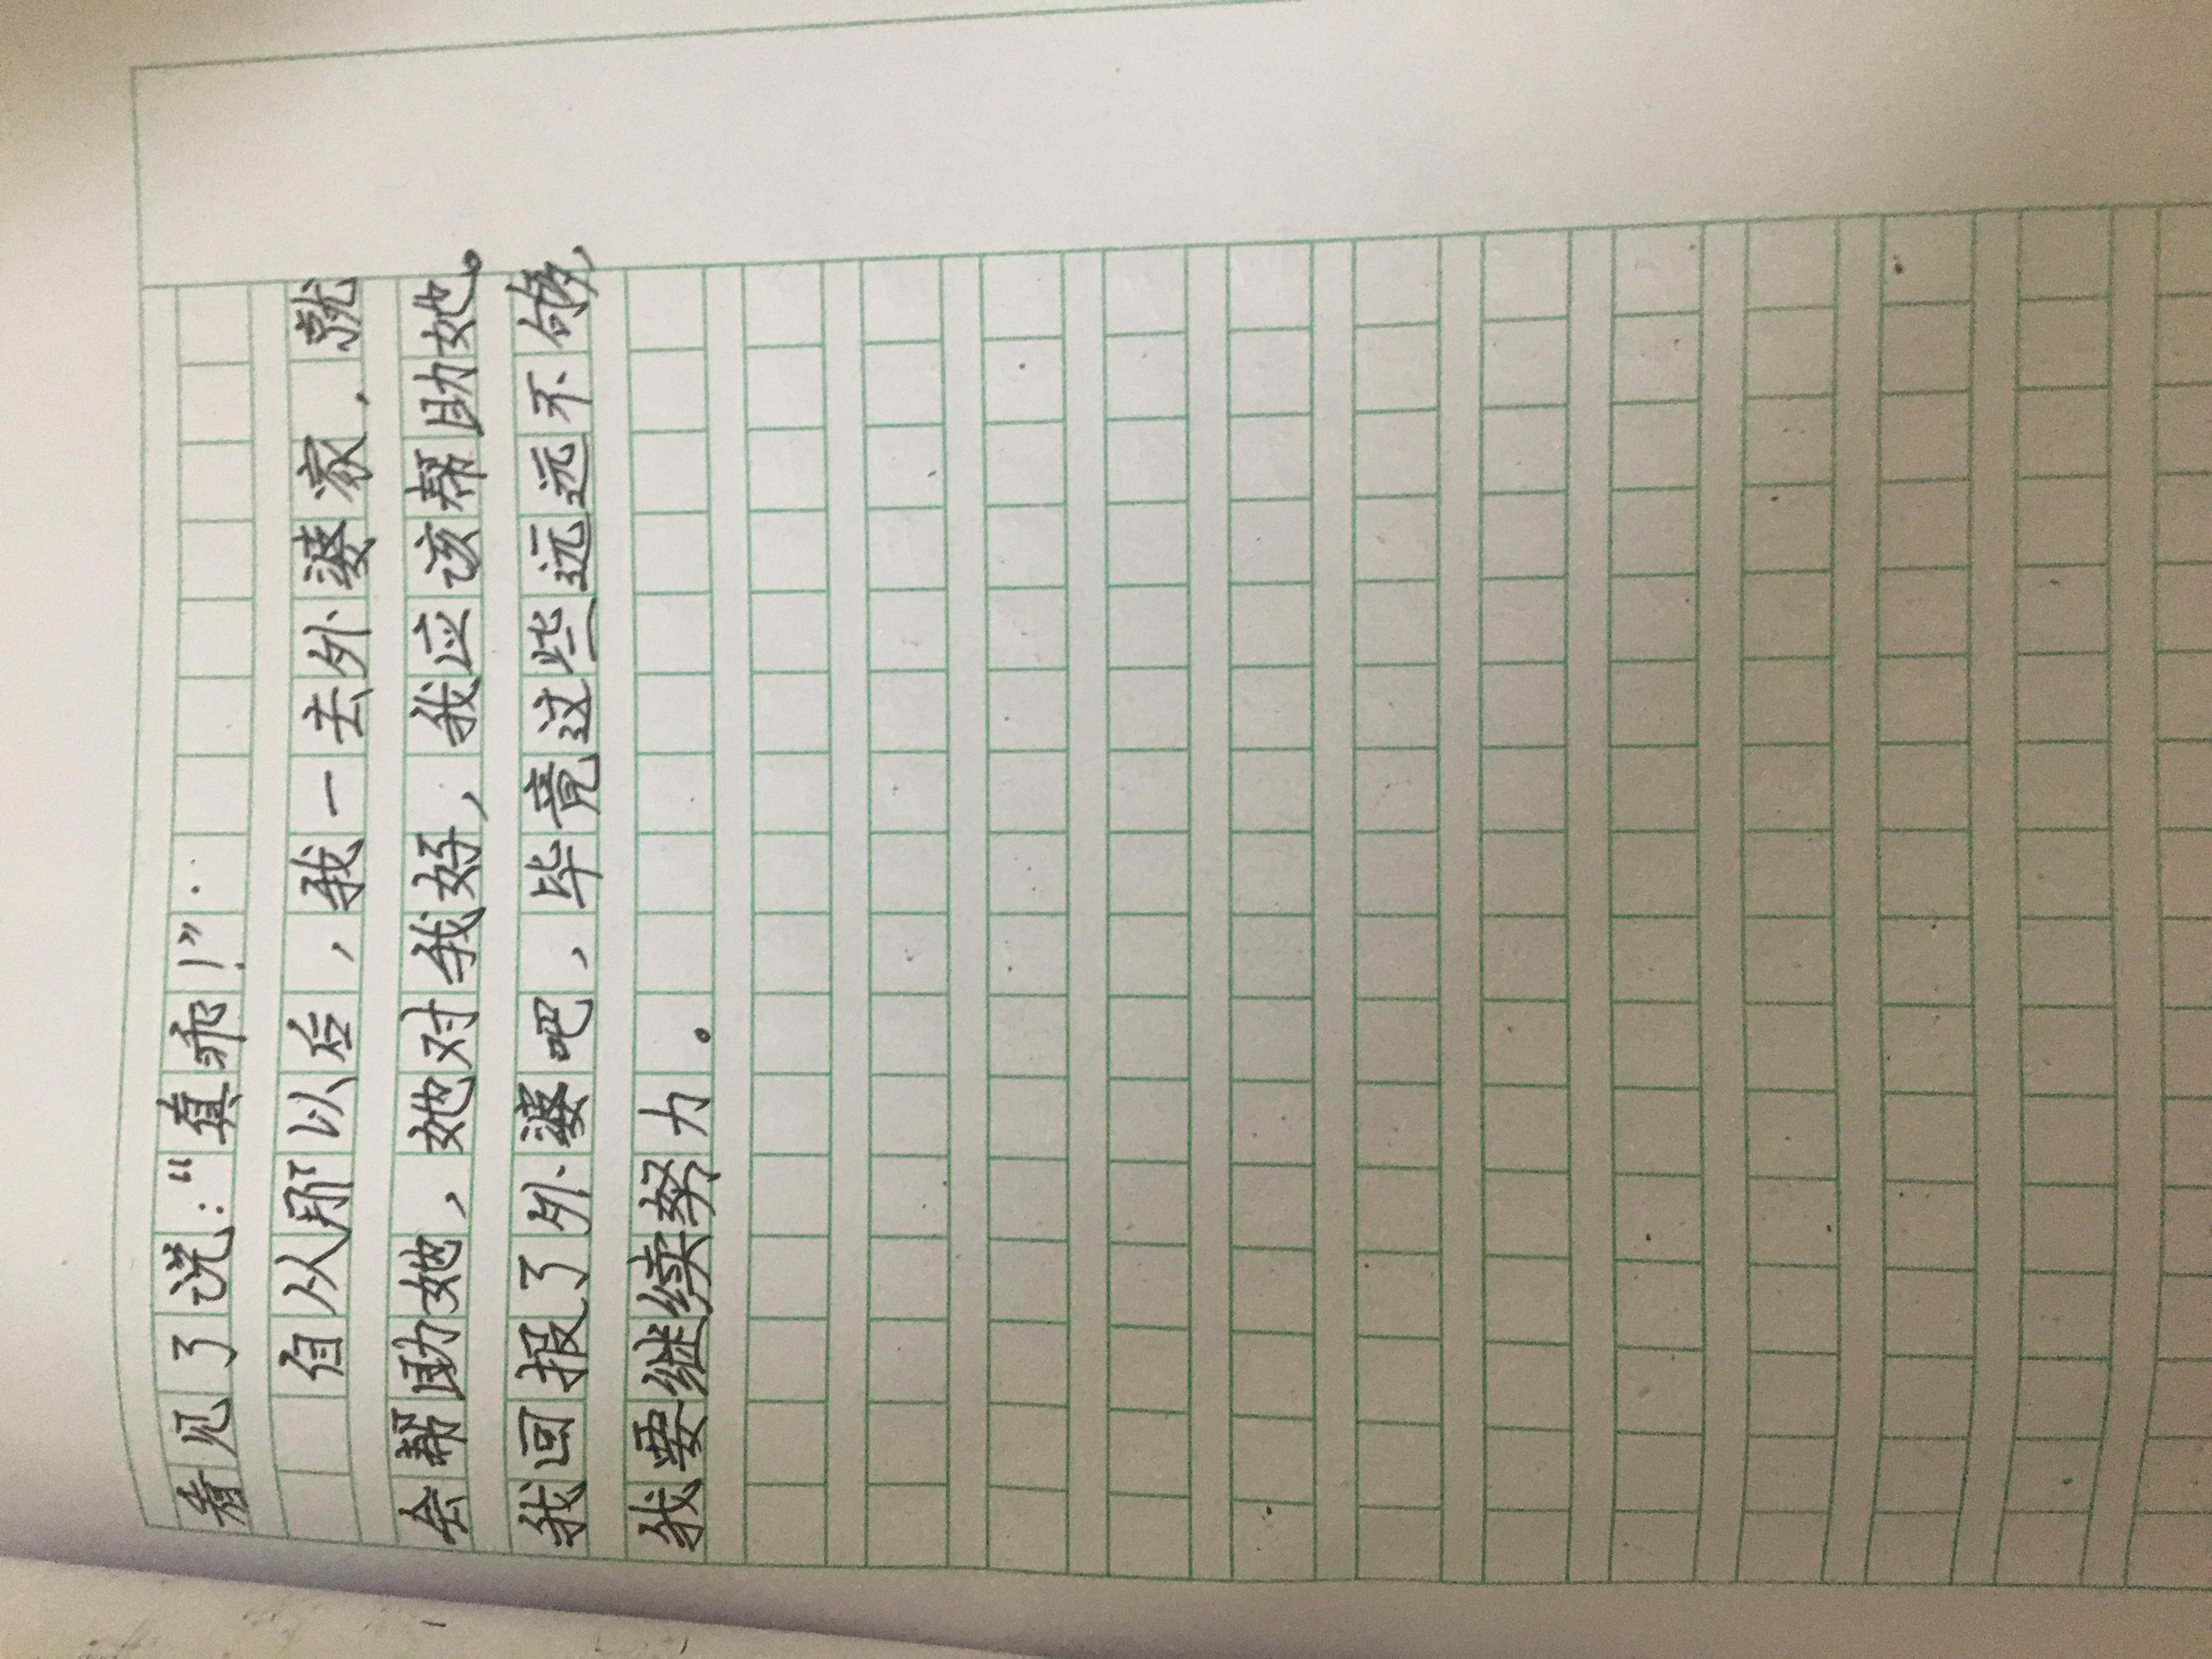 看见了说：“真乖！”.
自从那以后，我一去外婆家，就
会帮助她，她对我好，我应该帮助她。
我回报了外婆吧，毕竟这些远远不够，
我要继续努力。